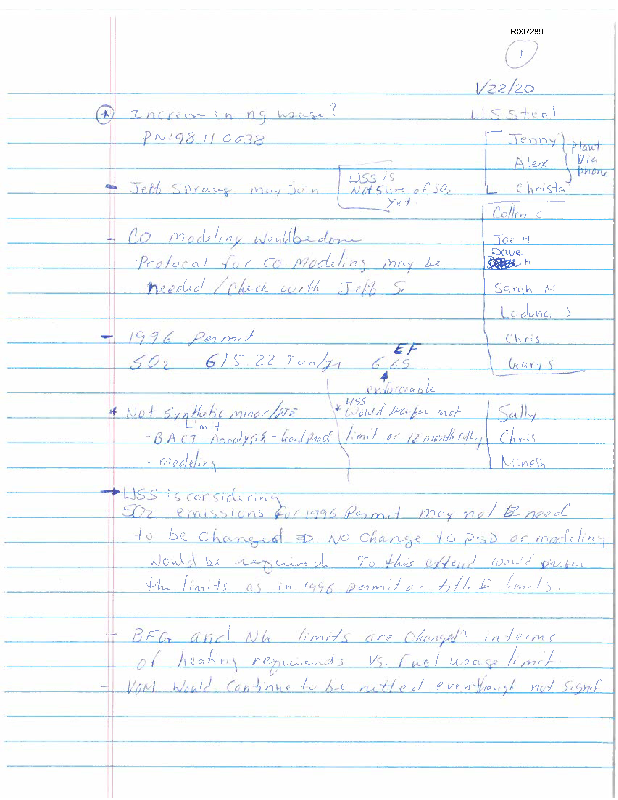 R007289
1
1/22/20
* Increase in ng usage?
USSteel
PN 98110038
Jenny
Alex
Christa
Plant
Via
phone
- Jeff Sprang may Join
USS is
Not sure of SO2
yet.
Collen C
- CO modeling would be done
Joe H
Dave
H
Protocal for CO Modeling may be
needed / Check with Jeff S.
Sarah
Chris
Gary S
- 1996 Permit
SO2 615.22 Ton/yr 6.65
EF
enforceable
* Not Synthetic minor
Limit
- BACT Analysis -
- modeling
* USS
would prefer
limit or 12 month
Sally
Chris
→ USS is considering
SO2 emissions for 1996 Permit may not need
to be changed ⇒ No Change to PSD or modeling
would be required To this extend would prefer
the limits as in 1996 permit or title limits.
- BFG and NG limits are changed in terms
of heating Vs. fuel usage limit.
- VOM would continue to be netted eventhough not signif